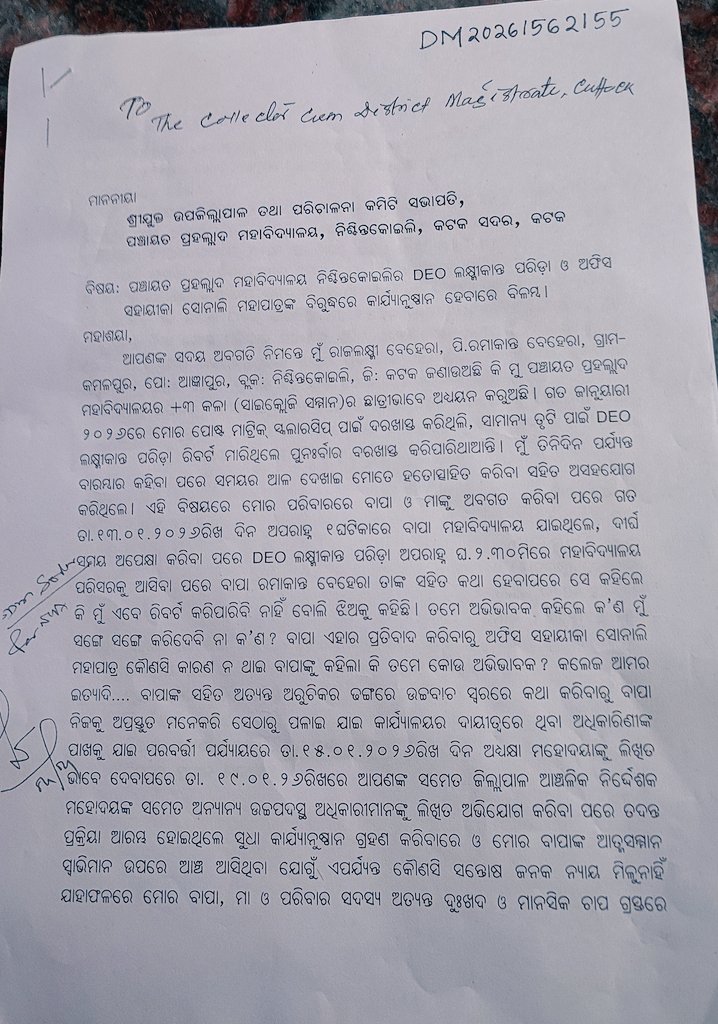 DM20261562155
To
The Collector Cum District Magistrate, Cuttack
ମାନନୀୟା
ଶ୍ରୀଯୁକ୍ତ ଉପଜିଲ୍ଲାପାଳ ତଥା ପରିଚାଳନା କମିଟି ସଭାପତି,
ପଞ୍ଚାୟତ ପ୍ରହଲ୍ଲାଦ ମହାବିଦ୍ୟାଳୟ, ନିଶ୍ଚିନ୍ତକୋଇଲି, କଟକ ସଦର, କଟକ
ବିଷୟ: ପଞ୍ଚାୟତ ପ୍ରହଲ୍ଲାଦ ମହାବିଦ୍ୟାଳୟ ନିଶ୍ଚିନ୍ତକୋଇଲିର DEO ଲକ୍ଷ୍ମୀକାନ୍ତ ପରିଡ଼ା ଓ ଅଫିସ
ସହାୟୀକା ସୋନାଲି ମହାପାତ୍ରଙ୍କ ବିରୁଦ୍ଧରେ କାର୍ଯ୍ୟାନୁଷ୍ଠାନ ହେବାରେ ବିଳମ୍ବ।
ମହାଶୟା,
ଆପଣଙ୍କ ସଦୟ ଅବଗତି ନିମନ୍ତେ ମୁଁ ରାଜଲକ୍ଷ୍ମୀ ବେହେରା, ପି.ରମାକାନ୍ତ ବେହେରା, ଗ୍ରାମ-
କମଳପୁର, ପୋ: ଆଜ୍ଞାପୁର, ବ୍ଲକ: ନିଶ୍ଚିନ୍ତକୋଇଲି, ଜି: କଟକ ଜଣାଉଅଛି କି ମୁ ପଞ୍ଚାୟତ ପ୍ରହଲ୍ଲାଦ
ମହାବିଦ୍ୟାଳୟର +୩ କଳା (ସାଇକ୍ଲୋଜି ସମ୍ମାନ)ର ଛାତ୍ରୀଭାବେ ଅଧ୍ୟୟନ କରୁଅଛି। ଗତ ଜାନୁୟାରୀ
୨୦୨୬ରେ ମୋର ପୋଷ୍ଟ ମାଟ୍ରିକ୍ ସ୍କଲାରସିପ୍ ପାଇଁ ଦରଖାସ୍ତ କରିଥିଲି, ସାମାନ୍ୟ ତୃଟି ପାଇଁ DEO
ଲକ୍ଷ୍ମୀକାନ୍ତ ପରିଡ଼ା ରିବର୍ଟ ମାରିଥିଲେ ପୁନଃର୍ବାର ଦରଖାସ୍ତ କରିପାରିଥାଆନ୍ତି। ମୁଁ ତିନିଦିନ ପର୍ଯ୍ୟନ୍ତ
ବାରମ୍ବାର କହିବା ପରେ ସମୟର ଆଳ ଦେଖାଇ ମୋତେ ହତୋତ୍ସାହିତ କରିବା ସହିତ ଅସହଯୋଗ
କରିଥିଲେ। ଏହି ବିଷୟରେ ମୋର ପରିବାରରେ ବାପା ଓ ମାଙ୍କୁ ଅବଗତ କରିବା ପରେ ଗତ
ତା.୧୩.୦୧.୨୦୨୬ରିଖ ଦିନ ଅପରାହ୍ନ ୧ଘଟିକାରେ ବାପା ମହାବିଦ୍ୟାଳୟ ଯାଇଥିଲେ, ଦୀର୍ଘ
ସମୟ ଅପେକ୍ଷା କରିବା ପରେ DEO ଲକ୍ଷ୍ମୀକାନ୍ତ ପରିଡ଼ା ଅପରାହ୍ନ ଘ.୨.୩୦ମିରେ ମହାବିଦ୍ୟାଳୟ
ପରିସରକୁ ଆସିବା ପରେ ବାପା ରମାକାନ୍ତ ବେହେରା ତାଙ୍କ ସହିତ କଥା ହେବାପରେ ସେ କହିଲେ
କି ମୁଁ ଏବେ ରିବର୍ଟ କରିପାରିବି ନାହିଁ ବୋଲି ଝିଅକୁ କହିଛି। ତମେ ଅଭିଭାବକ କହିଲେ କ'ଣ ମୁଁ
ସଙ୍ଗେ ସଙ୍ଗେ କରିଦେବି ନା କ'ଣ? ବାପା ଏହାର ପ୍ରତିବାଦ କରିବାରୁ ଅଫିସ ସହାୟୀକା ସୋନାଲି
ମହାପାତ୍ର କୌଣସି କାରଣ ନ ଥାଇ ବାପାଙ୍କୁ କହିଲା କି ତମେ କୋଉ ଅଭିଭାବକ? କଲେଜ ଆମର
ଇତ୍ୟାଦି.... ବାପାଙ୍କ ସହିତ ଅତ୍ୟନ୍ତ ଅରୁଚିକର ଢଙ୍ଗରେ ଉଚ୍ଚବାଚ ସ୍ୱରରେ କଥା କରିବାରୁ ବାପା
ନିଜକୁ ଅପ୍ରସ୍ତୁତ ମନେକରି ସେଠାରୁ ପଳାଇ ଯାଇ କାର୍ଯ୍ୟାଳୟର ଦାୟୀତ୍ୱରେ ଥିବା ଅଧିକାରିଣୀଙ୍କ
ପାଖକୁ ଯାଇ ପରବର୍ତ୍ତୀ ପର୍ଯ୍ୟାୟରେ ତା.୧୫.୦୧.୨୦୨୬ରିଖ ଦିନ ଅଧ୍ୟକ୍ଷା ମହୋଦୟାଙ୍କୁ ଲିଖିତ
ଭାବେ ଦେବାପରେ ତା. ୧୯.୦୧.୨୬ରିଖରେ ଆପଣଙ୍କ ସମେତ ଜିଲ୍ଲାପାଳ ଆଞ୍ଚଳିକ ନିର୍ଦ୍ଦେଶକ
ମହୋଦୟଙ୍କ ସମେତ ଅନ୍ୟାନ୍ୟ ଉଚ୍ଚପଦସ୍ଥ ଅଧିକାରୀମାନଙ୍କୁ ଲିଖିତ ଅଭିଯୋଗ କରିବା ପରେ ତଦନ୍ତ
ପ୍ରକ୍ରିୟା ଆରମ୍ଭ ହୋଇଥିଲେ ସୁଧା କାର୍ଯ୍ୟାନୁଷ୍ଠାନ ଗ୍ରହଣ କରିବାରେ ଓ ମୋର ବାପାଙ୍କ ଆତ୍ମସମ୍ମାନ
ସ୍ୱାଭିମାନ ଉପରେ ଆଞ୍ଚ ଆସିଥିବା ଯୋଗୁଁ ଏପର୍ଯ୍ୟନ୍ତ କୌଣସି ସନ୍ତୋଷ ଜନକ ନ୍ୟାୟ ମିଳୁନାହିଁ
ଯାହାଫଳରେ ମୋର ବାପା, ମା ଓ ପରିବାର ସଦସ୍ୟ ଅତ୍ୟନ୍ତ ଦୁଃଖଦ ଓ ମାନସିକ ଚାପ ଗ୍ରସ୍ତରେ